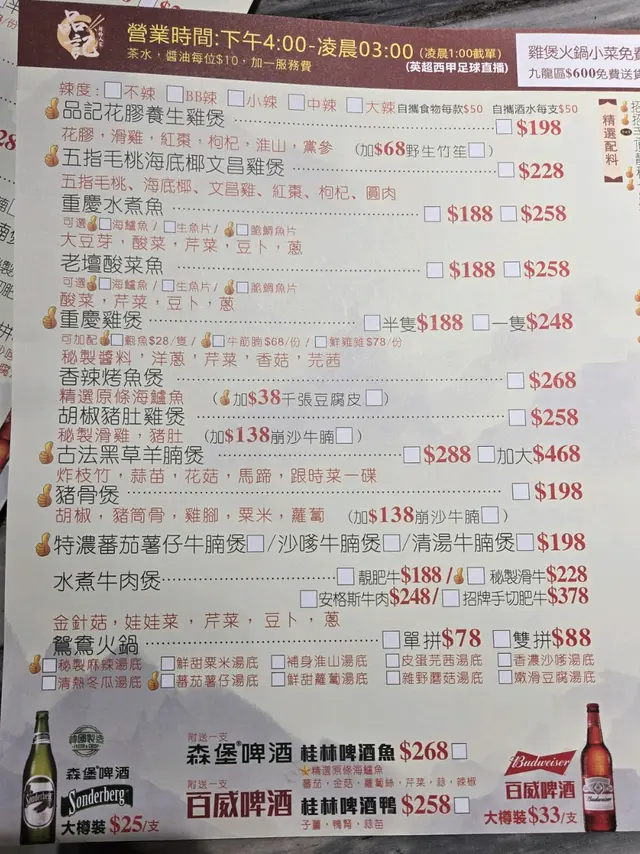 品記
營業時間:下午4:00-凌晨03:00 (凌晨1:00截單)
茶水,醬油每位$10,加一服務費 (英超西甲足球直播)
雞煲火鍋小菜免費
九龍區$600免費送貨
辣度: 不辣 BB辣 小辣 中辣 大辣 自攜食物每款$50 自攜酒水每支$50
精選配料
品記花膠養生雞煲 $198
花膠,滑雞,紅棗,枸杞,淮山,黨參 (加$68野生竹笙)
五指毛桃海底椰文昌雞煲 $228
五指毛桃、海底椰、文昌雞、紅棗、枸杞、圓肉
重慶水煮魚 $188 $258
可選 海鱸魚 / 生魚片 / 脆鯇魚片
大豆芽,酸菜,芹菜,豆卜,蔥
老壇酸菜魚 $188 $258
可選 海鱸魚 / 生魚片 / 脆鯇魚片
酸菜,芹菜,豆卜,蔥
重慶雞煲 半隻$188 一隻$248
可加配 鮑魚$28/隻 / 牛筋腩$68/份 / 鮮雞雜$78/份
秘製醬料,洋蔥,芹菜,香菇,芫茜
香辣烤魚煲 $268
精選原條海鱸魚 (加$38千張豆腐皮)
胡椒豬肚雞煲 $258
秘製滑雞,豬肚 (加$138崩沙牛腩)
古法黑草羊腩煲 $288 加大$468
炸枝竹,蒜苗,花菇,馬蹄,跟時菜一碟
豬骨煲 $198
胡椒,豬筒骨,雞腳,粟米,蘿蔔 (加$138崩沙牛腩)
特濃蕃茄薯仔牛腩煲 /沙嗲牛腩煲 /清湯牛腩煲 $198
水煮牛肉煲 靚肥牛$188 / 秘製滑牛$228
安格斯牛肉$248/ 招牌手切肥牛$378
金針菇,娃娃菜,芹菜,豆卜,蔥
鴛鴦火鍋 單拼$78 雙拼$88
秘製麻辣湯底 鮮甜粟米湯底 補身淮山湯底 皮蛋芫茜湯底 香濃沙嗲湯底
清熱冬瓜湯底 蕃茄薯仔湯底 鮮甜蘿蔔湯底 雜野蘑菇湯底 嫩滑豆腐湯底
韓國製造
森堡啤酒
Sonderberg
大樽裝 $25/支
附送一支
森堡啤酒 桂林啤酒魚 $268
精選原條海鱸魚
蕃茄,金菇,蘿蔔絲,芹菜,蒜,辣椒
附送一支
百威啤酒 桂林啤酒鴨 $258
子薑,鴨腎,蒜苗
Budweiser
百威啤酒
大樽裝 $33/支